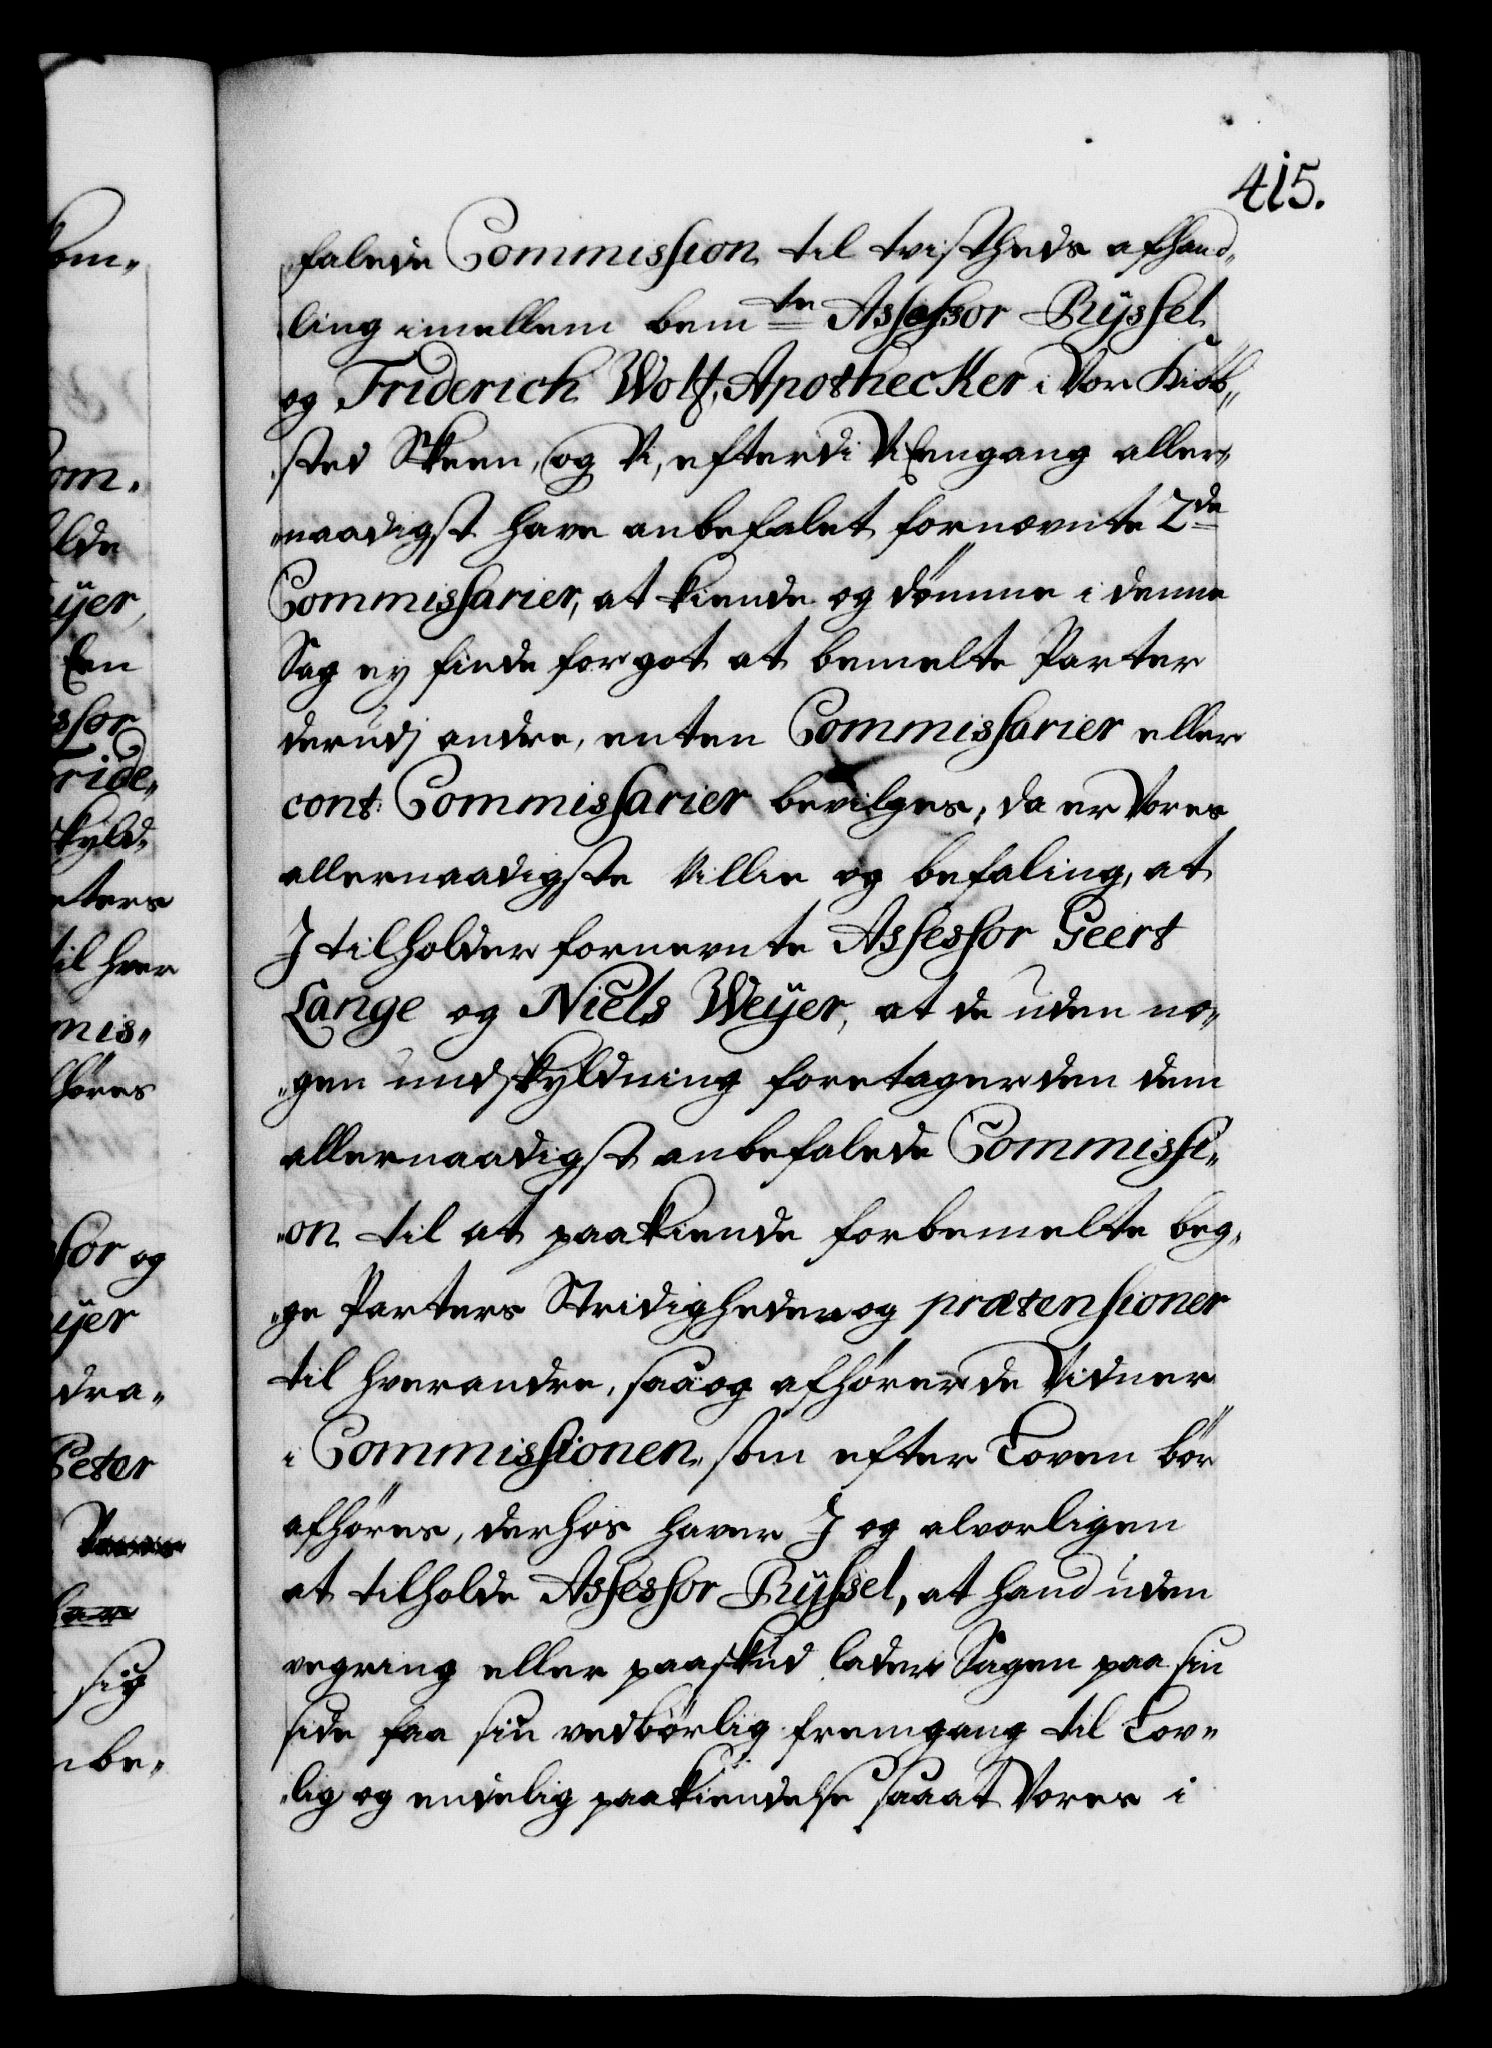 415.
falede Commission til tvistheds afhand„
ling imellem bemte Assessor Rÿssel
og Friderich Wolf, Apothecker i Vor Kiöb„
sted Skeen, og Vi, efterdi Vi Eengang aller„
„naadigst have anbefalet fornevnte 2de
Commissarier, at kiende og dömme i denne
Sag ey finde for got at bemelte Parter
derudj andre, enten Commissarier eller
cont: Commissarier bevilges; da er Vores
allernaadigste Villie og befaling, at
J tilholder fornevnte Assessor Geert
Lange og Niels Weÿer, at de uden no„
„gen undskyldning foretager den dem
allernaadigst anbefalede Commissi„
„on til at paakiende forbemelte beg„
„ge Parters Stridigheder og prætensioner
til hverandre, saa og afhörer de Vidner
i Commissionen, som efter Loven bör
afhöres, derhos haver J og alvorligen
at tilholde Assessor Rÿssel, at hand uden
vegring eller paaskud lader Sagen paa sin
side faa sin vedbörlig fremgang til Lov„
„lig og endelig paakiendelse saaat Vores i